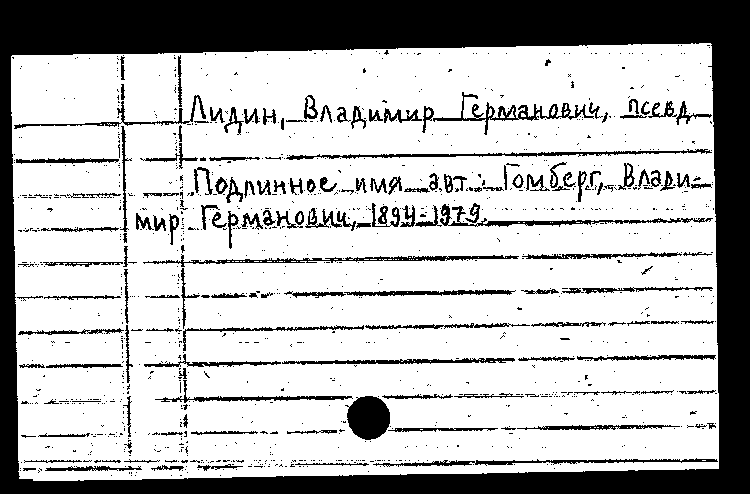 Лидин, Владимир Германович, псевд.
Подлинное имя авт.: Гомберг, Влади-
мир Германович, 1894-1979.